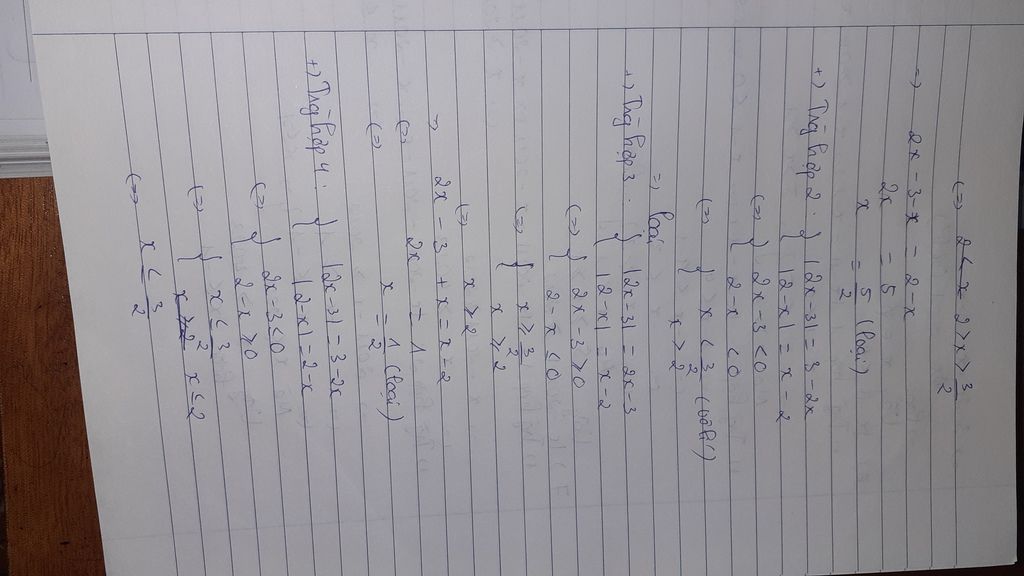 (=) 2 < x 2 > x > 3/2
=) 2x - 3 - x = 2 - x
2x = 5
x = 5/2 (loại)
+) Trg hợp 2. { |2x-3| = 3 - 2x
|2-x| = x - 2
(=) { 2x - 3 < 0
2-x < 0
(=) { x < 3/2 (loại)
x > 2
=) loại
+) Trg hợp 3. { |2x-3| = 2x - 3
|2-x| = x - 2
(=) { 2x - 3 ⩾ 0
2 - x < 0
(=) { x ⩾ 3/2
x ⩾ 2
(=) x ⩾ 2
=) 2x - 3 + x = x - 2
(=) 2x = 1
(=) x = 1/2 (loại)
+) Trg hợp 4. { |2x-3| = 3 - 2x
|2-x| = 2-x
(=) { 2x-3 < 0
2-x ⩾ 0
(=) { x < 3/2
x ⩾ 2 x ≤ 2
(=) x < 3/2